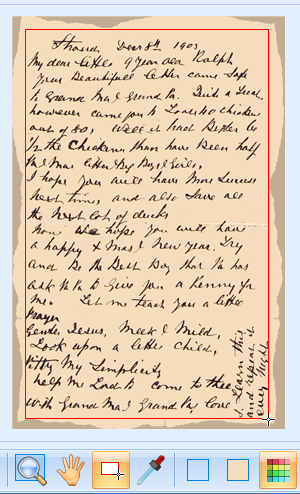 Stroud, Decr 8th 1903
My dear little 9 year old Ralph
Your Beautifull Letter came Safe
to Grand Ma & Grand Pa. Such a Treat.
however came you to Loose 40 chicken
out of 80, Well it had Better be
the Chickens than have Been half
the little Big Boys & Girls,
I hope you will have More Success
Next time, and also Save all
the Next lot of ducks
Now We hope you will have
a happy Xmas & New year. Try
and Be the Best Boy that Pa has
ask Pa to Give you a Penny for
me. Let me teach you a little
Prayer
Gentle Jesus, Meek & Mild,
Look upon a little Child,
Pitty My Simplicity
help me Lord to come to thee
with Grand Ma & Grand Pa, love
Learn this,
and repeat it
ever Night